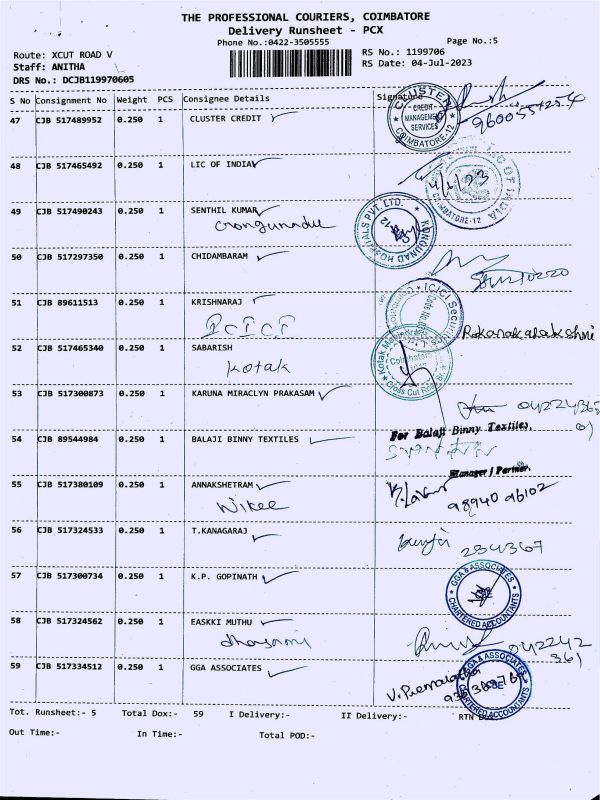 THE PROFESSIONAL COURIERS, COIMBATORE
Delivery Runsheet - PCX
Phone No.:0422-3505555
Page No.:5
Route: XCUT ROAD V
RS No.: 1199706
Staff: ANITHA
RS Date: 04-Jul-2023
DRS No.: DCJB119970605
S No Consignment No Weight PCS Consignee Details Signature
47 CJB 517489952 0.250 1 CLUSTER CREDIT
CLUSTER CREDIT MANAGEMENT SERVICES COIMBATORE-12
48 CJB 517465492 0.250 1 LIC OF INDIA
4/7/23
LIC OF INDIA COIMBATORE-12
49 CJB 517490243 0.250 1 SENTHIL KUMAR
KONGUNAD HOSPITALS PVT. LTD.
50 CJB 517297350 0.250 1 CHIDAMBARAM
51 CJB 89611513 0.250 1 KRISHNARAJ
ICICI
52 CJB 517465340 0.250 1 SABARISH
Kotak
53 CJB 517300873 0.250 1 KARUNA MIRACLYN PRAKASAM
54 CJB 89544984 0.250 1 BALAJI BINNY TEXTILES
For Balaji Binny Textiles,
Manager / Partner.
55 CJB 517380109 0.250 1 ANNAKSHETRAM
98940 96102
56 CJB 517324533 0.250 1 T.KANAGARAJ
2534367
57 CJB 517300734 0.250 1 K.P. GOPINATH
GGA & ASSOCIATES CHARTERED ACCOUNTANTS
58 CJB 517324562 0.250 1 EASKKI MUTHU
59 CJB 517334512 0.250 1 GGA ASSOCIATES
GGA & ASSOCIATES CHARTERED ACCOUNTANTS
Tot. Runsheet:- 5 Total Dox:- 59 I Delivery:- II Delivery:- RTN
Out Time:- In Time:- Total POD:-